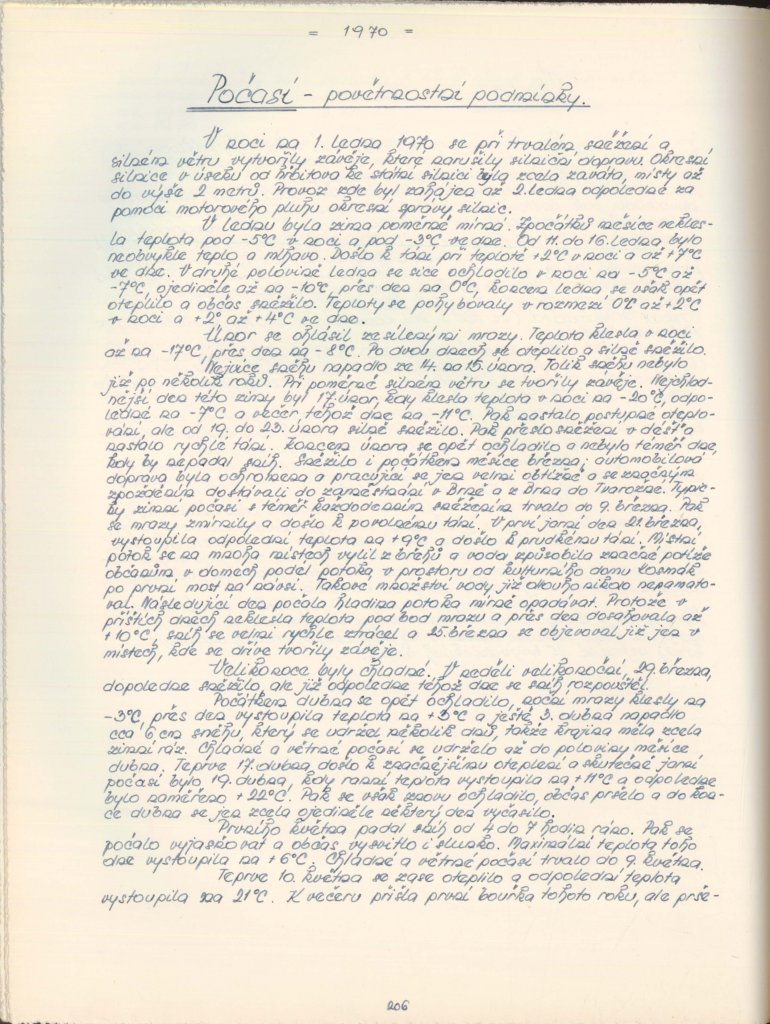 = 1970 =
Počasí - povětrnostní podmínky.
V noci na 1. ledna 1970 se při trvalém sněžení a
silném větru vytvořily závěje, které narušily silniční dopravu. Okresní
silnice v úseku od hřbitova ke státní silnici byla zcela zavátá, místy až
do výše 2 metrů. Provoz zde byl zahájen až 2. ledna odpoledne za
pomoci motorového pluhu okresní správy silnic.
V lednu byla zima poměrně mírná. Zpočátku měsíce nekles-
la teplota pod -5°C v noci a pod -3°C ve dne. Od 11. do 16. ledna bylo
neobvykle teplo a mlhavo. Došlo k tání při teplotě +2°C v noci a až +7°C
ve dne. V druhé polovině ledna se sice ochladilo v noci na -5°C až
-7°C, ojediněle až na -10°C, přes den na 0°C, koncem ledna se však opět
oteplilo a občas sněžilo. Teploty se pohybovaly v rozmezí 0°C až +2°C
v noci a +2° až +4°C ve dne.
Únor se ohlásil zesílenými mrazy. Teplota klesla v noci
až na -17°C, přes den na -8°C. Po dvou dnech se oteplilo a silně sněžilo.
Nejvíce sněhu napadlo ze 14. na 15. února. Tolik sněhu nebylo
již po několik roků. Při poměrně silném větru se tvořily závěje. Nejchlad-
nější den této zimy byl 17. únor, kdy klesla teplota v noci na -20°C, odpo-
ledne na -7°C a večer téhož dne na -11°C. Pak nastalo postupné oteplo-
vání, ale od 19. do 23. února silně sněžilo. Pak přešlo sněžení v déšť a
nastalo rychlé tání. Koncem února se opět ochladilo a nebylo téměř dne,
kdy by nepadal sníh. Sněžilo i počátkem měsíce března; automobilová
doprava byla ochromena a pracující se jen velmi obtížně a se značným
zpožděním dostávali do zaměstnání v Brně a z Brna do Tvarožné. Typic-
ky zimní počasí s téměř každodenním sněžením trvalo do 9. března. Pak
se mrazy zmírnily a došlo k povolnému tání. V první jarní den 21. března,
vystoupila odpolední teplota na +9°C a došlo k prudkému tání. Místní
potok se na mnoha místech vylil z břehů a voda způsobila značné potíže
občanům v domech podél potoka, v prostoru od kulturního domu Kosmák
po první most na návsi. Takové množství vody již dlouho nikdo nepamato-
val. Následující den počala hladina potoka mírně opadávat. Protože v
příštích dnech neklesla teplota pod bod mrazu a přes den dosahovala až
+10°C, sníh se velmi rychle ztrácel a 25. března se objevoval již jen v
místech, kde se dříve tvořily závěje.
Velikonoce byly chladné. V neděli velikonoční, 29. března,
dopoledne sněžilo, ale již odpoledne téhož dne se sníh rozpouštěl.
Počátkem dubna se opět ochladilo, noční mrazy klesly na
-3°C, přes den vystoupila teplota na +3°C a ještě 3. dubna napadlo
cca 6 cm sněhu, který se udržel několik dnů, takže krajina měla zcela
zimní ráz. Chladné a větrné počasí se udrželo až do poloviny měsíce
dubna. Teprve 17. dubna došlo k značnějšímu oteplení a skutečně jarní
počasí bylo 19. dubna, kdy ranní teplota vystoupila na +11°C a odpoledne
bylo naměřeno +22°C. Pak se však znovu ochladilo, občas pršelo a do kon-
ce dubna se jen zcela ojediněle některý den vyčasilo.
Prvního května padal sníh od 4 do 7 hodin ráno. Pak se
počalo vyjasňovat a občas vysvitlo i slunko. Maximální teplota toho
dne vystoupila na +6°C. Chladné a větrné počasí trvalo do 9. května.
Teprve 10. května se zase oteplilo a odpolední teplota
vystoupila na 21°C. K večeru přišla první bouřka tohoto roku, ale prše-
206